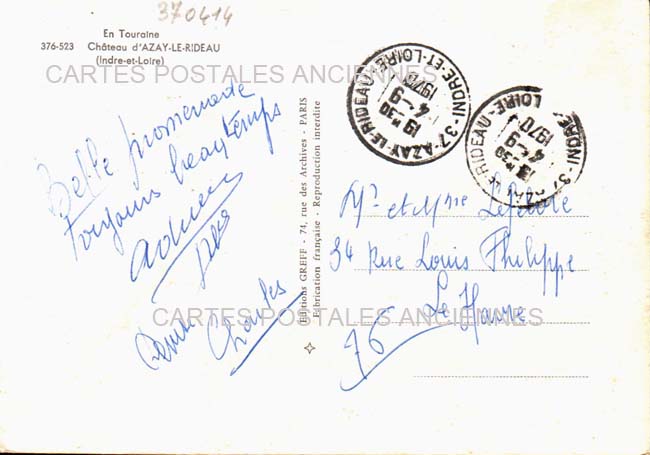 370414
En Touraine
376-523 Château d'AZAY-LE-RIDEAU
(Indre-et-Loire)
CARTES POSTALES ANCIENNES
Belle promenade
Toujours beau temps
Adrien
Charles
Editions GREFF - 74, rue des Archives - PARIS
Fabrication française - Reproduction interdite
37-AZAY-LE-RIDEAU INDRE-ET-LOIRE
19 H 30
4-9
1970
37-AZAY-LE-RIDEAU INDRE-ET-LOIRE
4-9
1970
Mr et Mme Lefebvre
34 Rue Louis Philippe
Le Havre
76
CARTES POSTALES ANCIENNES